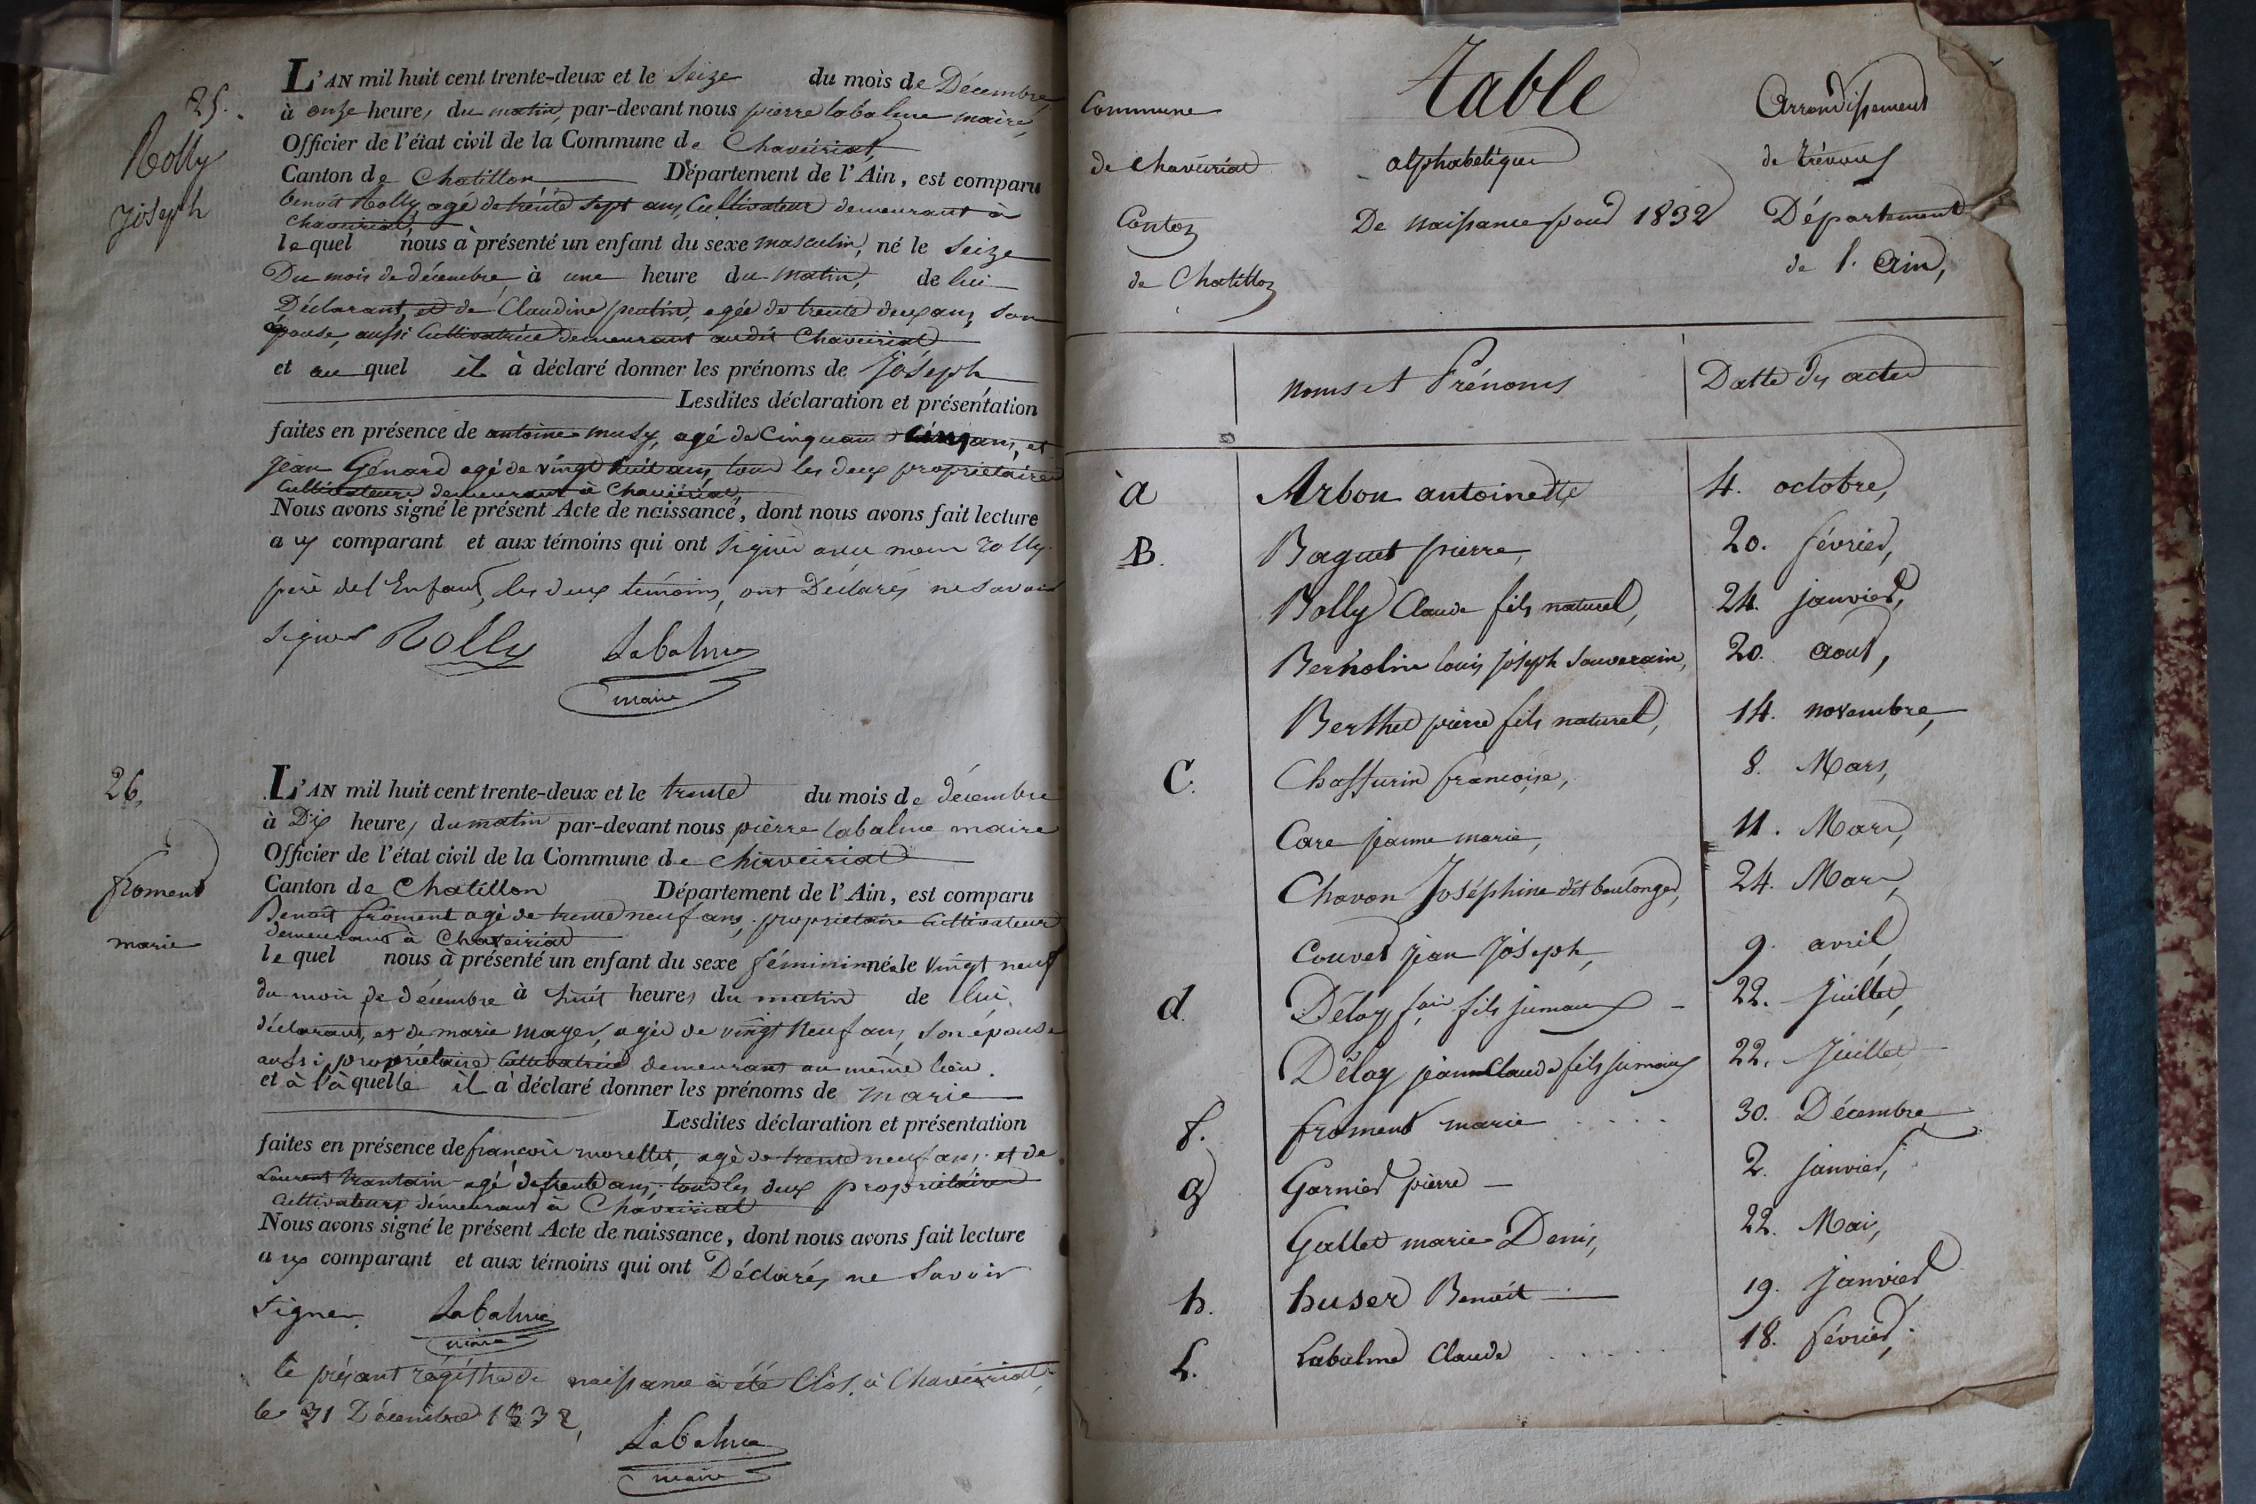 25.
Rolly
joseph
L'AN mil huit cent trente-deux et le Seize du mois de Décembre,
à onze heures du matin, par-devant nous pierre labalme maire,
Officier de l'état civil de la Commune de Chaveiriat,
Canton de Chatillon Département de l'Ain, est comparu
benoit Rolly agé de trente sept ans, Cultivateur demeurant à
Chaveiriat,
lequel nous à présenté un enfant du sexe masculin, né le seize
Du mois de décembre à une heure du matin, de lui
Déclarant, et de Claudine agée de trente deux ans, son
épouse, aussi Cultivatrice demeurant audit Chaveiriat
et au quel il à déclaré donner les prénoms de Joseph
Lesdites déclaration et présentation
faites en présence de antoine musy, agé de Cinquante cinq ans, et
jean Génard agé de vingt huit ans, tous les deux propriétaires
Cultivateurs demeurant à Chaveiriat,
Nous avons signé le présent Acte de naissance, dont nous avons fait lecture
aux comparant et aux témoins qui ont signer avec nous rolly
père de l'Enfant, les deux témoins, ont Déclarés ne savoir
signer Rolly Labalme
maire
26,
froment
marie
L'AN mil huit cent trente-deux et le trente du mois de décembre
à Dix heures du matin par-devant nous pierre labalme maire
Officier de l'état civil de la Commune de Chaveiriat
Canton de Chatillon Département de l'Ain, est comparu
Benoit froment agé de trente neuf ans, propriétaire Cultivateur
demeurant à Chaveiriat
lequel nous à présenté un enfant du sexe féminin née le vingt neuf
du mois de décembre à huit heures du matin de lui,
déclarant, et de marie mayer, agée de vingt neuf ans, son épouse
aussi propriétaire Cultivatrice demeurant au même lieu.
et à laquelle il a déclaré donner les prénoms de marie
Lesdites déclaration et présentation
faites en présence de françois morellet, agé de trente neuf ans, et de
Laurent trantain agé de trente ans, tous les deux propriétaires
Cultivateurs demeurant à Chaveiriat
Nous avons signé le présent Acte de naissance, dont nous avons fait lecture
aux comparant et aux témoins qui ont Déclarés ne savoir
signer Labalme
maire
le présent régistre de naissance à été Clos, à Chaveiriat,
le 31 Décembre 1832,
Labalme
maire
table
Commune Arrondissement
de Chaveiriat alphabétique de trévoux
Canton De naissance pour 1832 Département
de Chatillon de l'Ain,
noms et Prénoms Datte des actes
a Arbon antoinette 4. octobre,
B. Baguet pierre, 20. février,
Bolly Claude fils naturel, 24. janvier,
Bertholin louis joseph Souverain, 20. aout,
Berthet pierre fils naturel, 14. novembre,
C. Chaffurin francoise, 8. Mars,
Care jeanne marie, 11. Mars,
Chavon Joséphine dit boulonger, 24. Mars,
Couvet jean Joseph, 9. avril,
d. Délay fois fils jumaux 22. Juillet,
Délay jean Claude fils jumaux 22. Juillet
f. froment marie 30. Décembre
g Garnier pierre 2. janvier,
Gallet marie Denis, 22. Mai,
h. huser Benoit 19. janvier,
L. Labalme Claude 18. février,